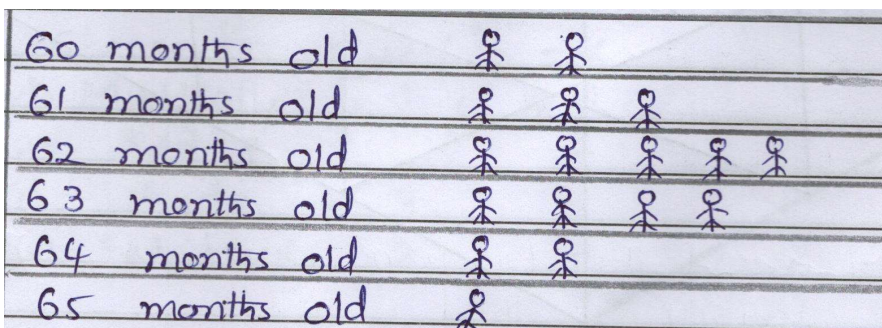 60 months old
61 months old
62 months old
63 months old
64 months old
65 months old